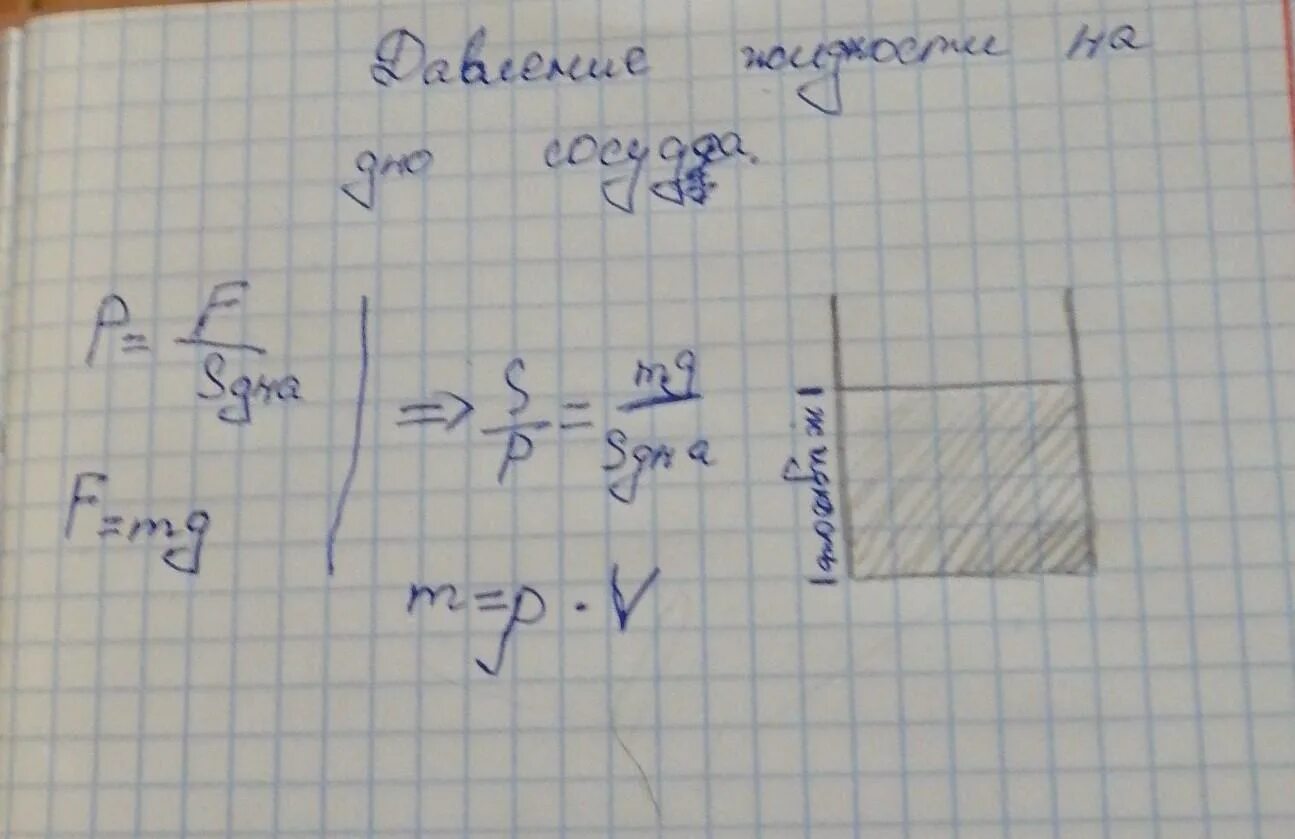 Давление жидкости на
дно сосуда.
P = F / Sдна
F = mg
=> S / P = mg / Sдна
m = ρ · V